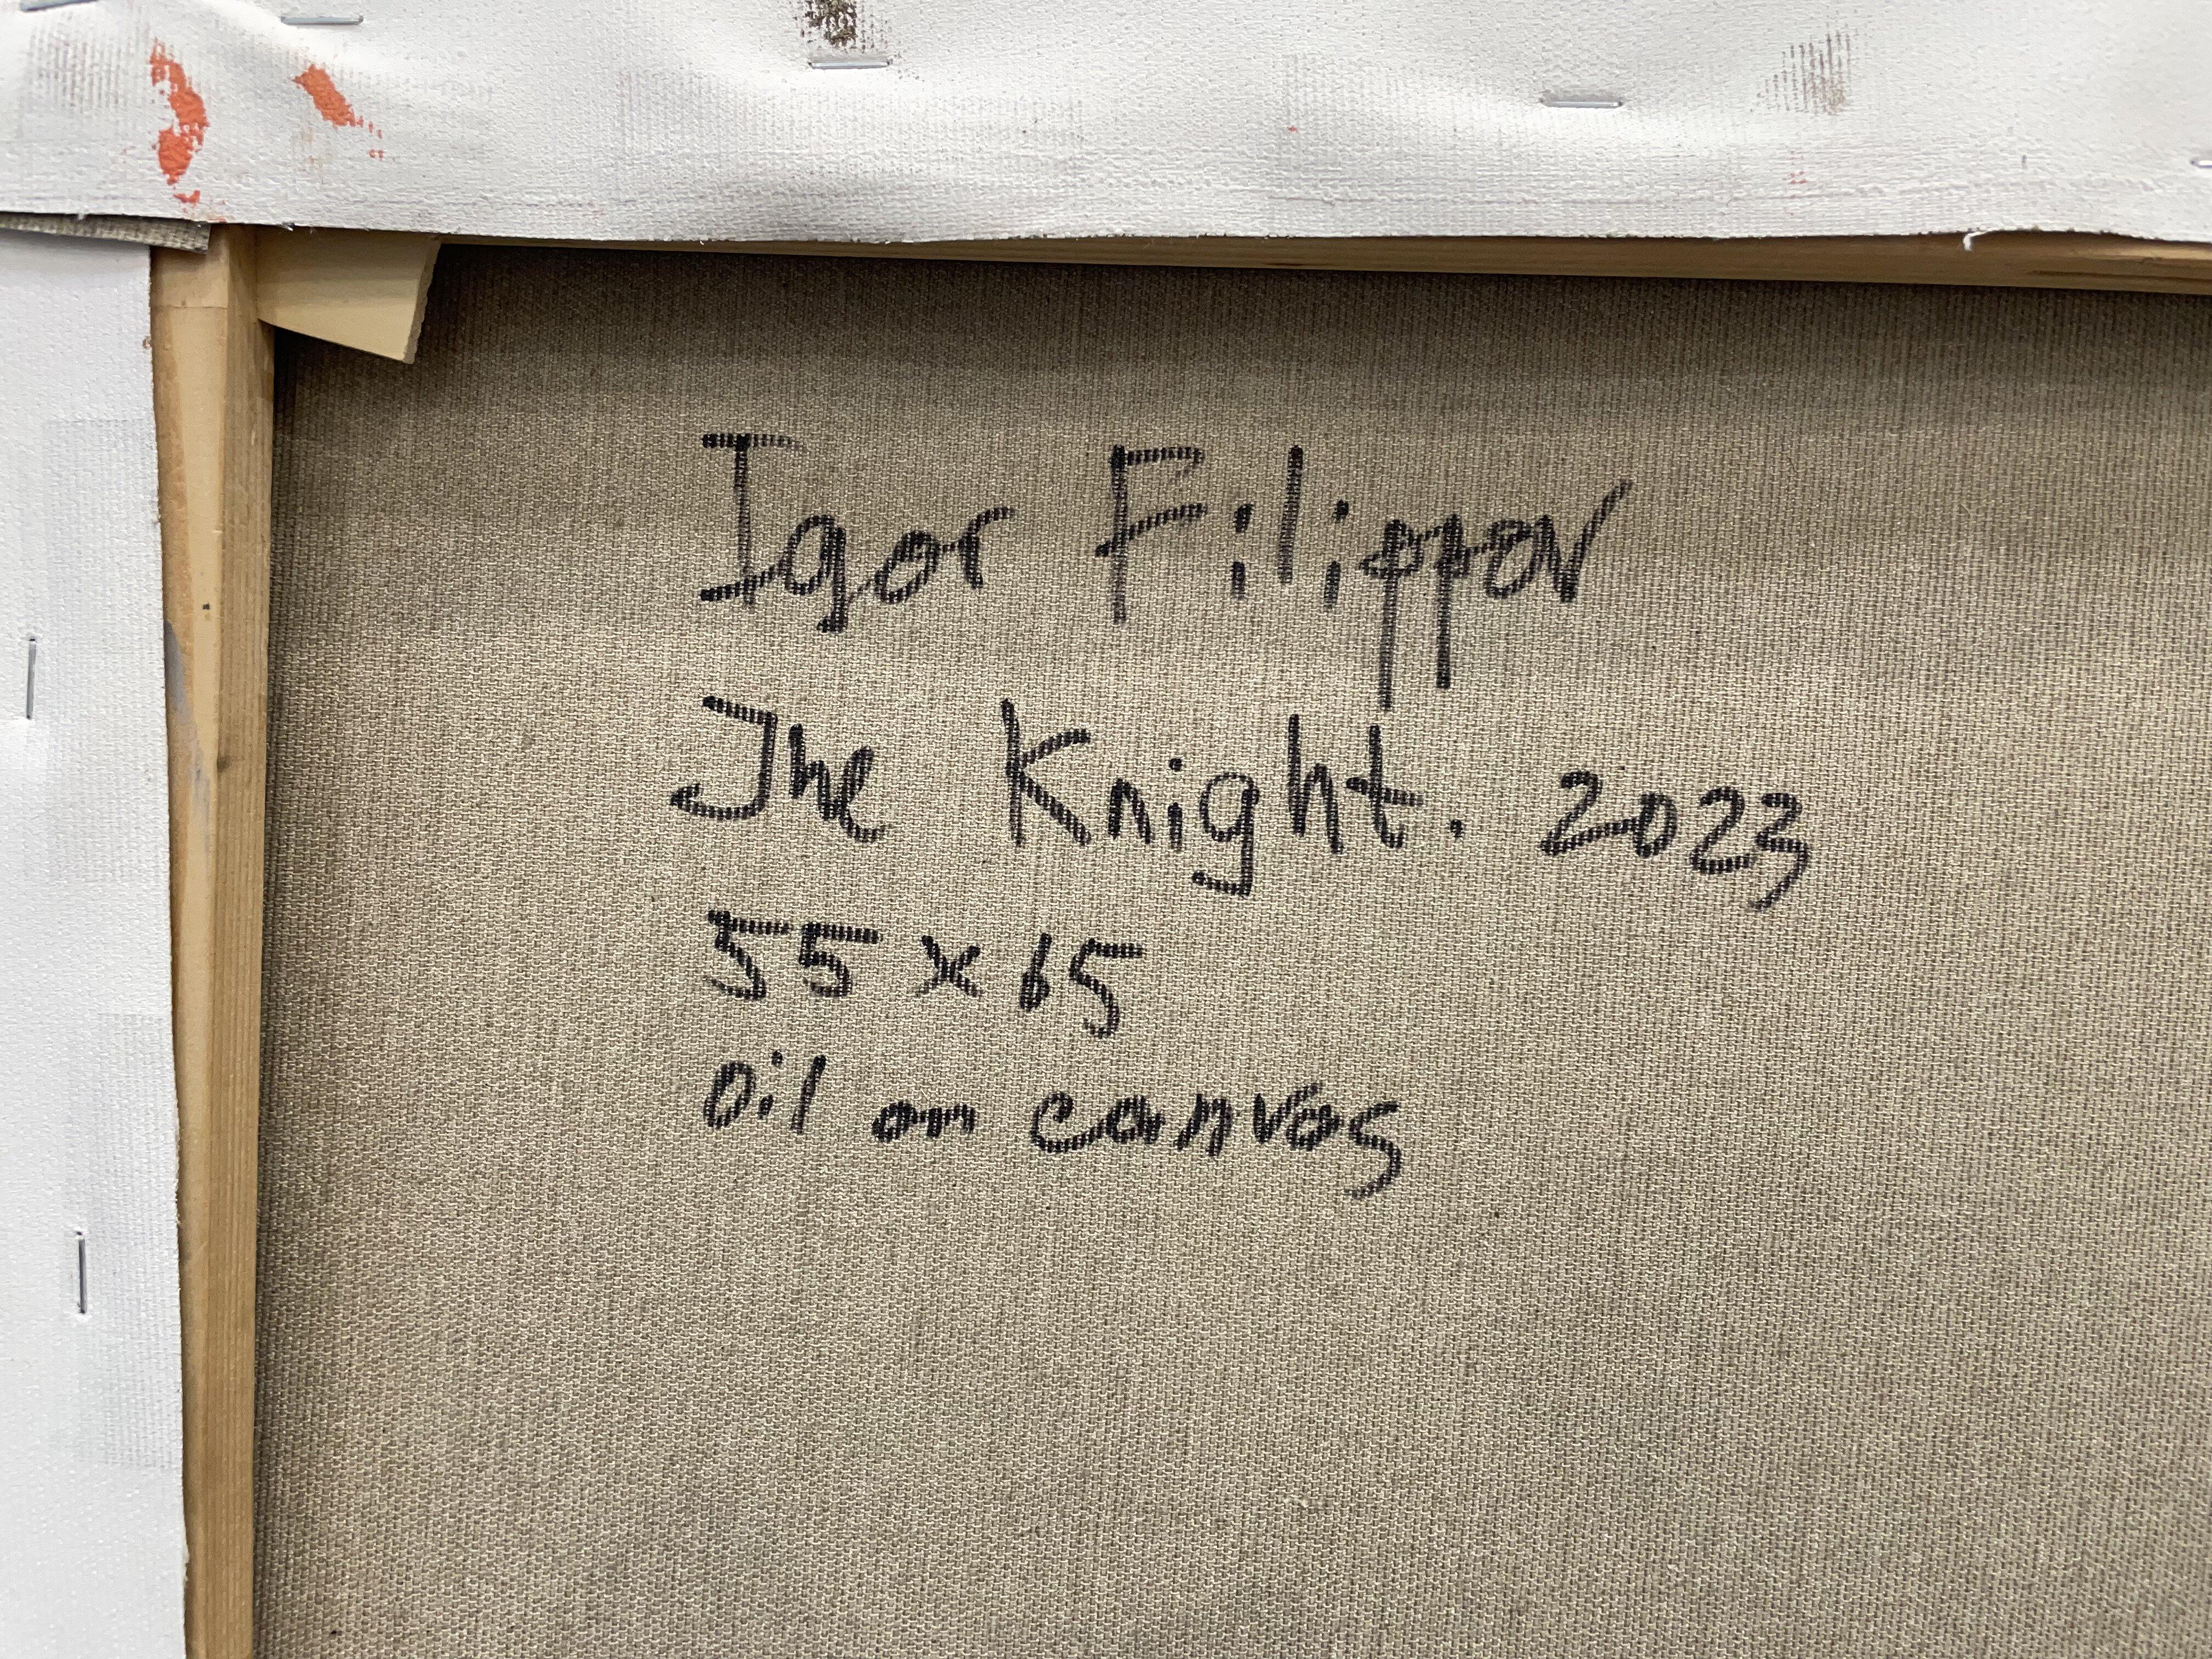 Igor Filippov
The Knight. 2023
55 x 65
Oil on canvas